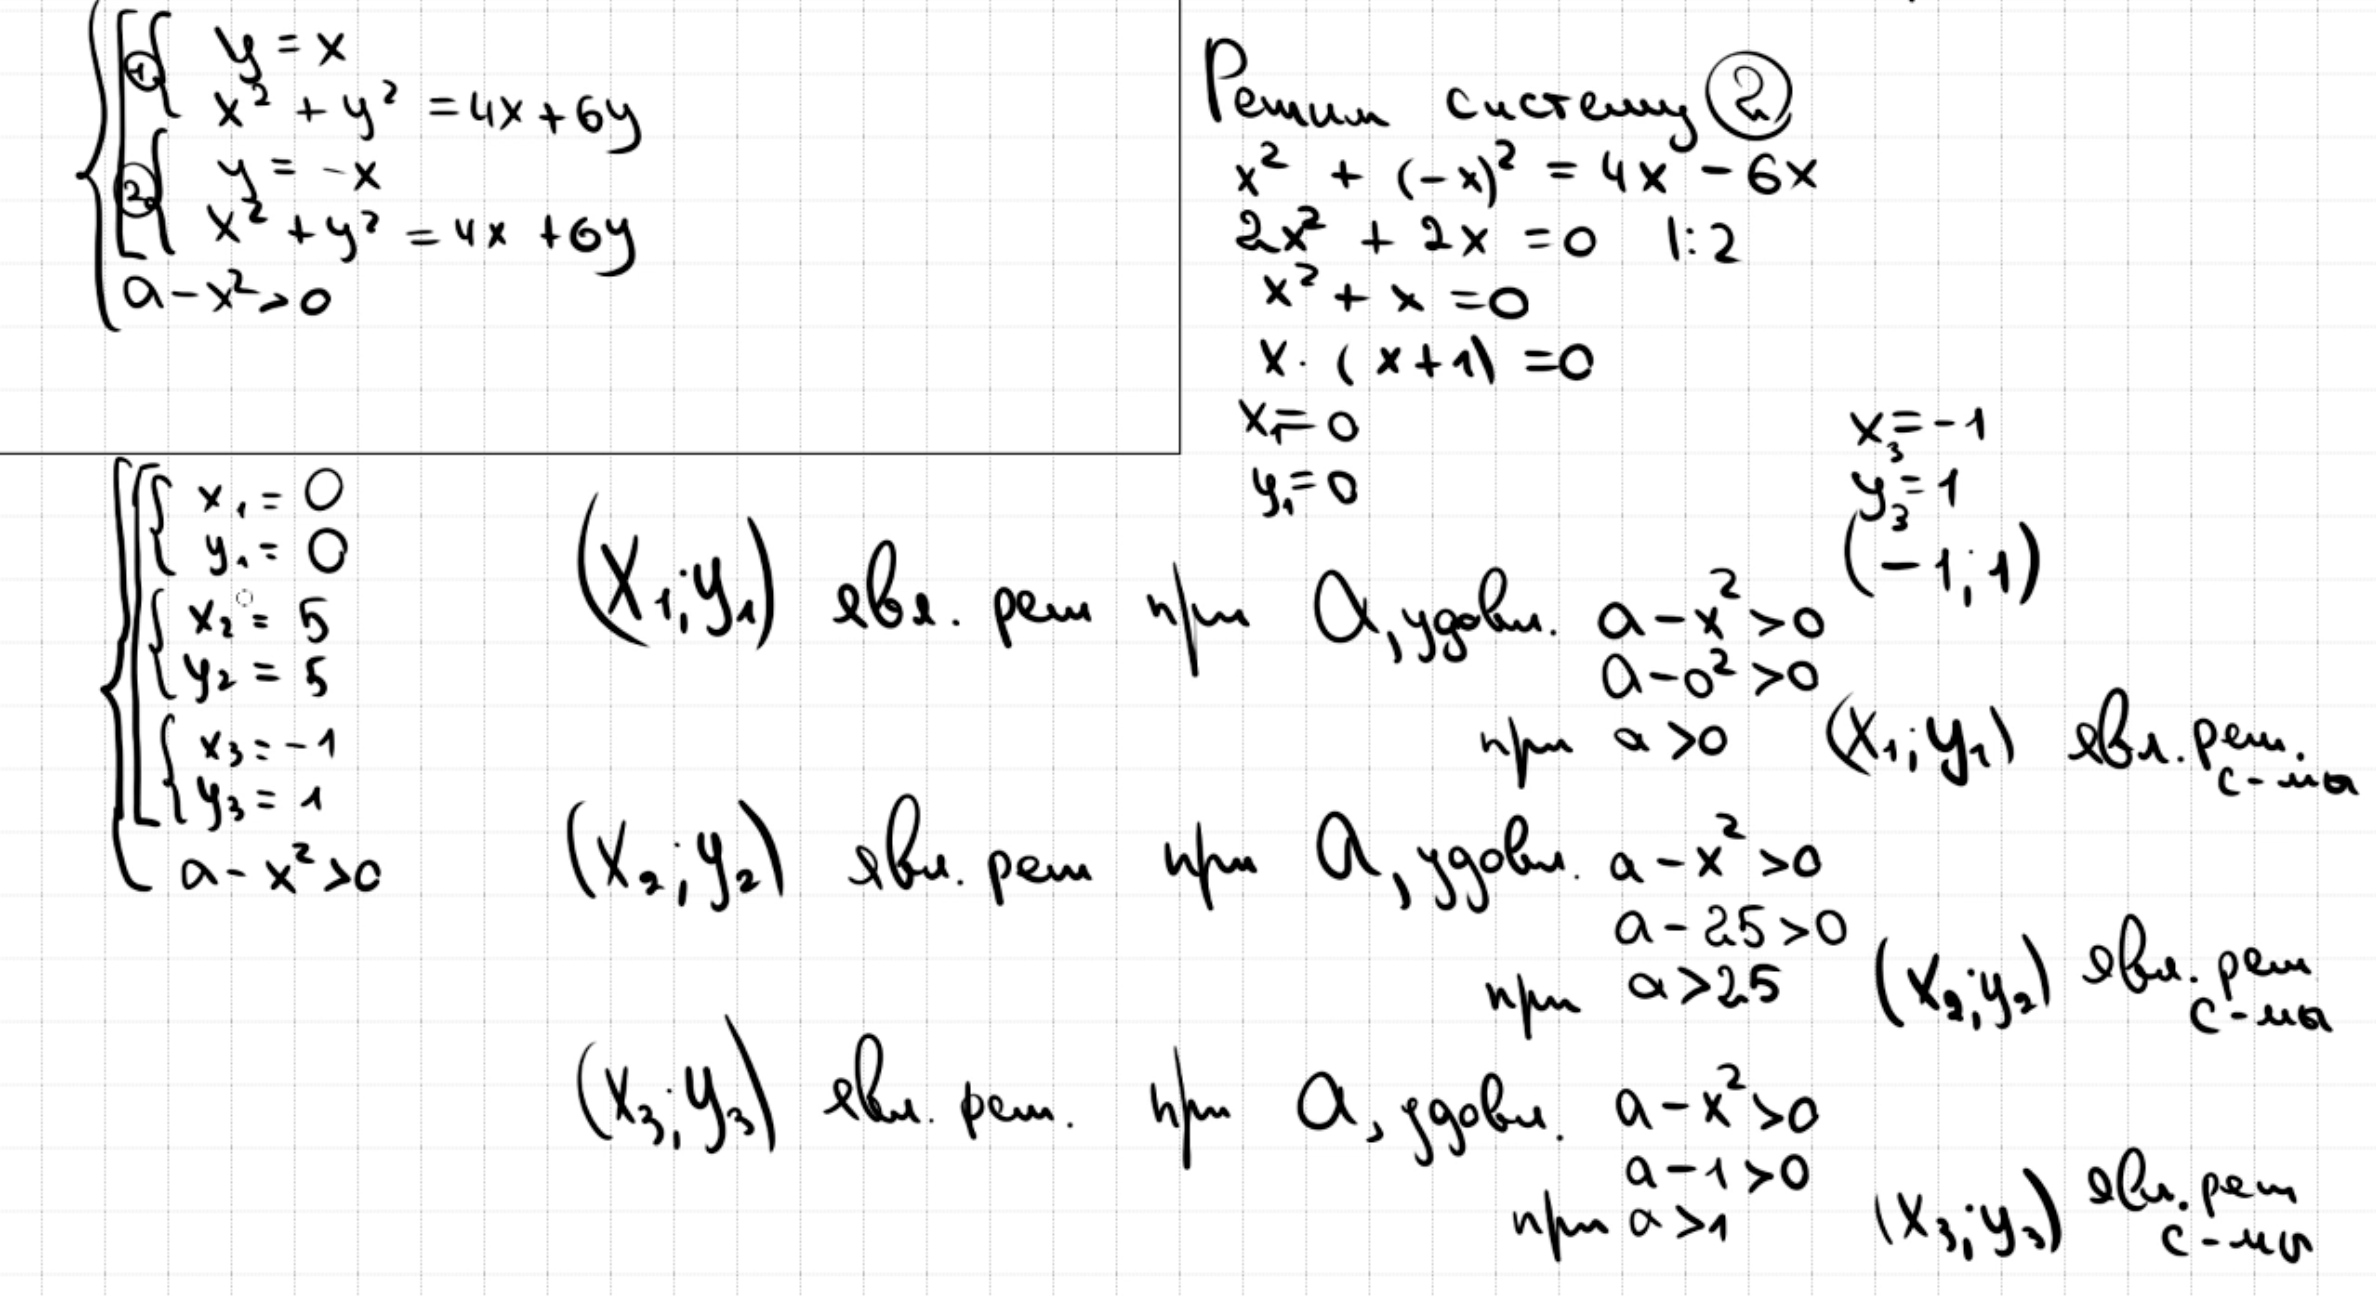 ① y = x
x² + y² = 4x + 6y
② y = -x
x² + y² = 4x + 6y
a - x² > 0
Решим систему ②
x² + (-x)² = 4x - 6x
2x² + 2x = 0 |:2
x² + x = 0
x · (x + 1) = 0
x₁ = 0
y₁ = 0
x₃ = -1
y₃ = 1
(-1; 1)
x₁ = 0
y₁ = 0
x₂ = 5
y₂ = 5
x₃ = -1
y₃ = 1
a - x² > 0
(x₁; y₁) явл. реш при a, удовл. a - x² > 0
a - 0² > 0
при a > 0 (x₁; y₁) явл. реш. с-мы
(x₂; y₂) явл. реш при a, удовл. a - x² > 0
a - 25 > 0
при a > 25 (x₂; y₂) явл. реш с-мы
(x₃; y₃) явл. реш. при a, удовл. a - x² > 0
a - 1 > 0
при a > 1 (x₃; y₃) явл. реш с-мы